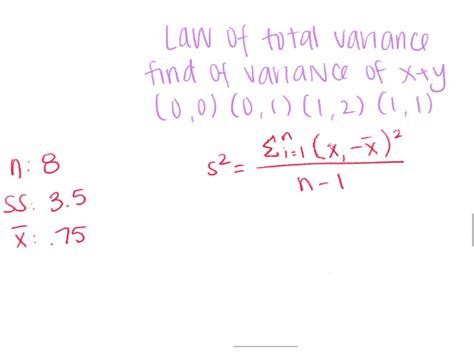 Law of total variance
find of variance of x+y
(0,0) (0,1) (1,2) (1,1)
n: 8
SS: 3.5
x̄: .75
s² = Σⁿᵢ₌₁ (xᵢ-x̄)² / n-1